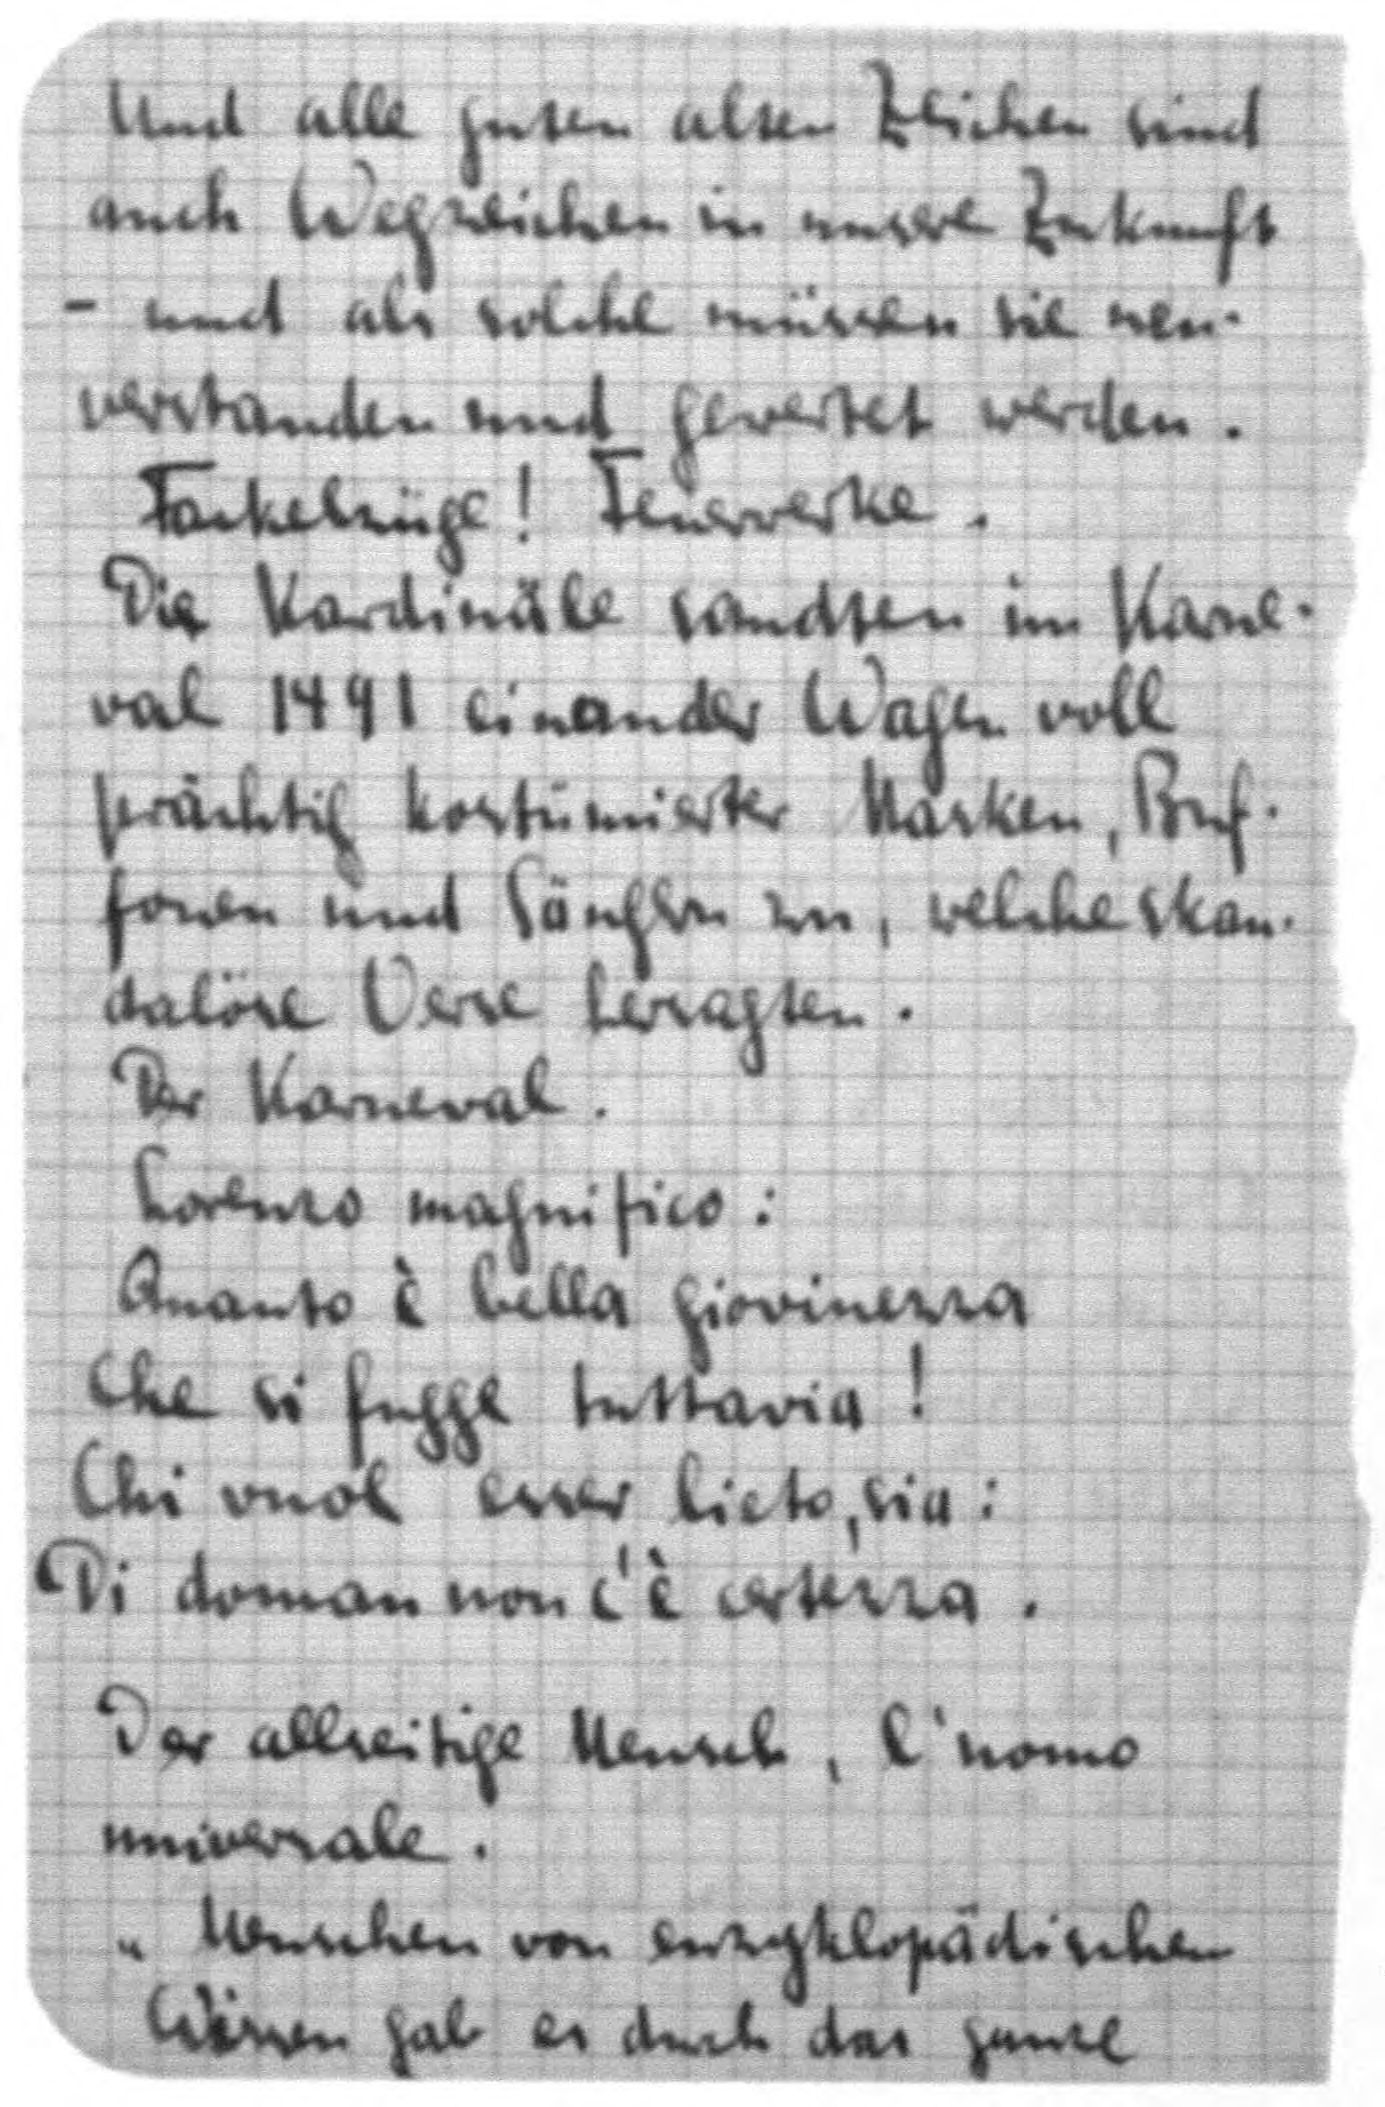 Und alle guten alten Zeichen sind
auch Wegzeichen in unsere Zukunft
- und als solche müssen sie neu-
verstanden und gewertet werden.
Fackelzüge! Feuerwerke.
Die Kardinäle sandten im Karne-
val 1491 einander Wagen voll
prächtig kostümierter Masken, Buf-
fonen und Sängern zu, welche skan-
dalöse Verse hersagten.
Der Karneval.
Lorenzo magnifico:
Quanto è bella giovinezza
Che si fugge tuttavia!
Chi vuol esser lieto, sia:
Di doman non c'è certezza.
Der allseitige Mensch, l'uomo
universale.
"Menschen von enzyklopädischen
Wissen gab es durch das ganze